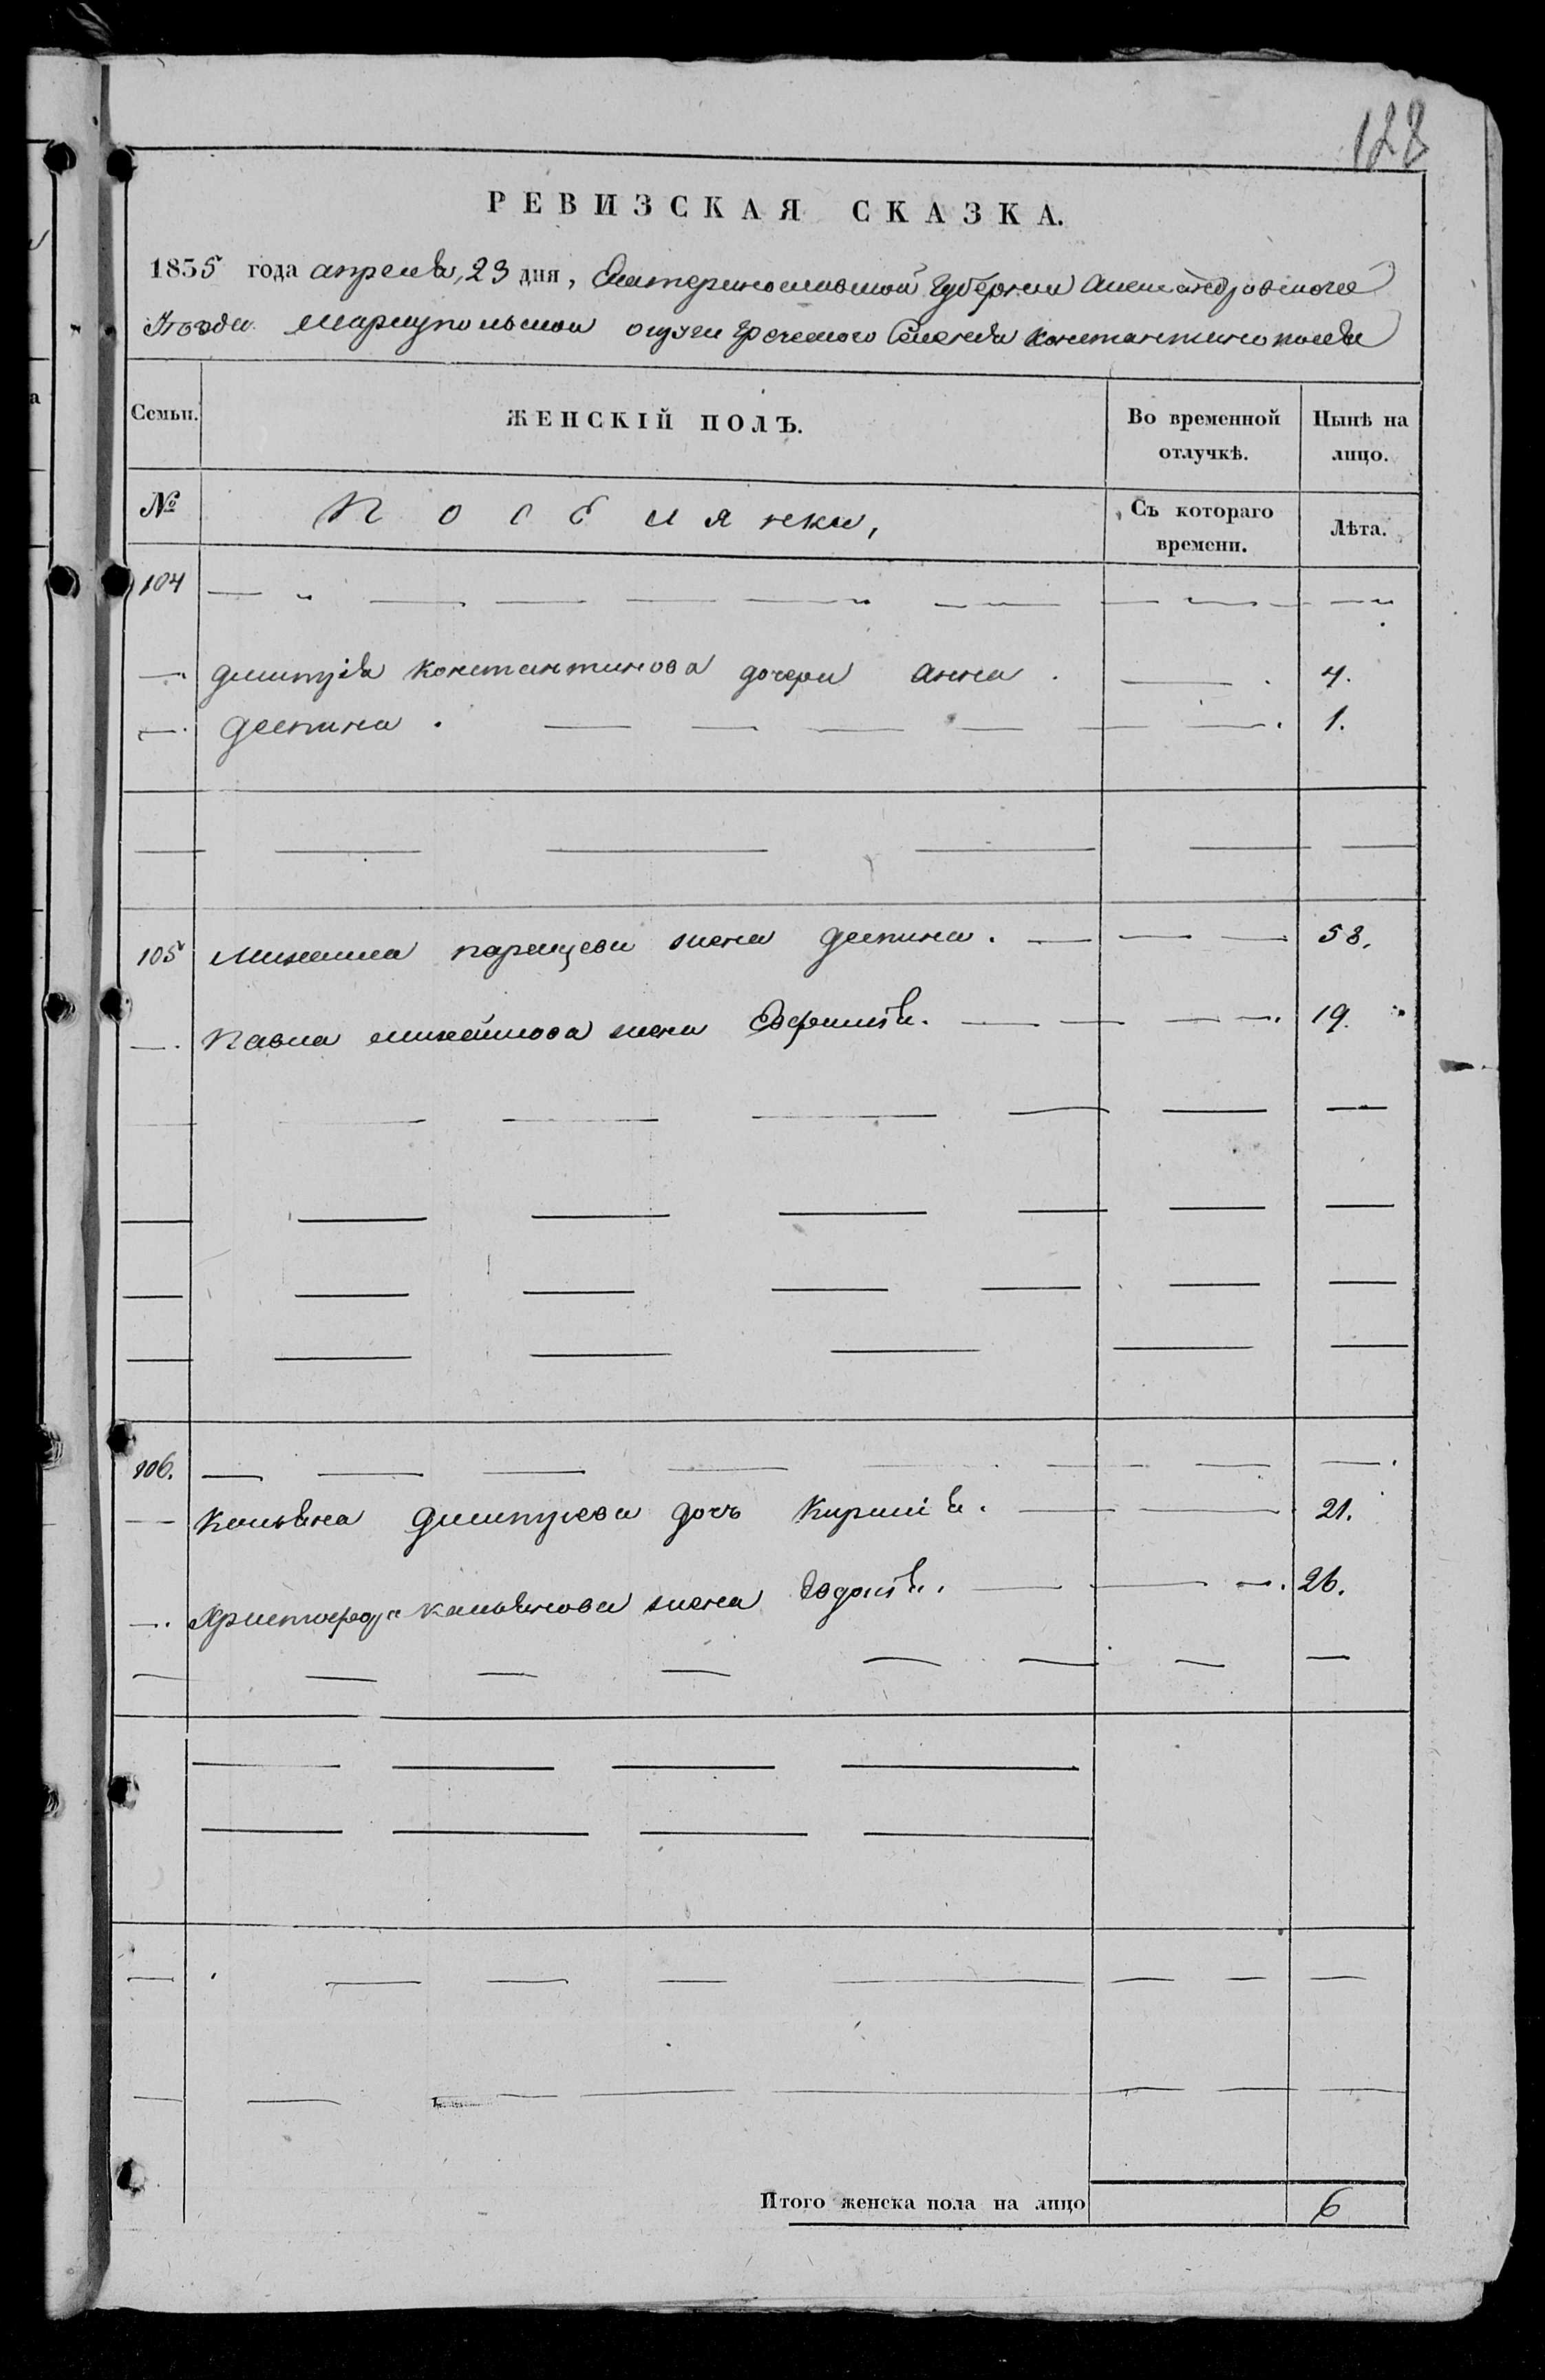 128
РЕВИЗСКАЯ СКАЗКА.
1855 года апреля, 23 дня, Екатеринославской Губернии Александровского
Уезда Мариупольской округи Греческого Селения Константинополя
Семьи.
ЖЕНСКІЙ ПОЛЪ.
Во временной отлучкѣ.
Нынѣ на лицо.
№
Поселянки,
Съ котораго времени.
Лѣта.
104
Дмитрія Константинова дочери Анна . 4.
Деспина . 1.
105 Михаила жена Деспина . 58.
Павла Михайлова жена Софиія . 19.
106.
дочь Киріакія . 21.
Христофора жена 26.
Итого женска пола на лицо 6